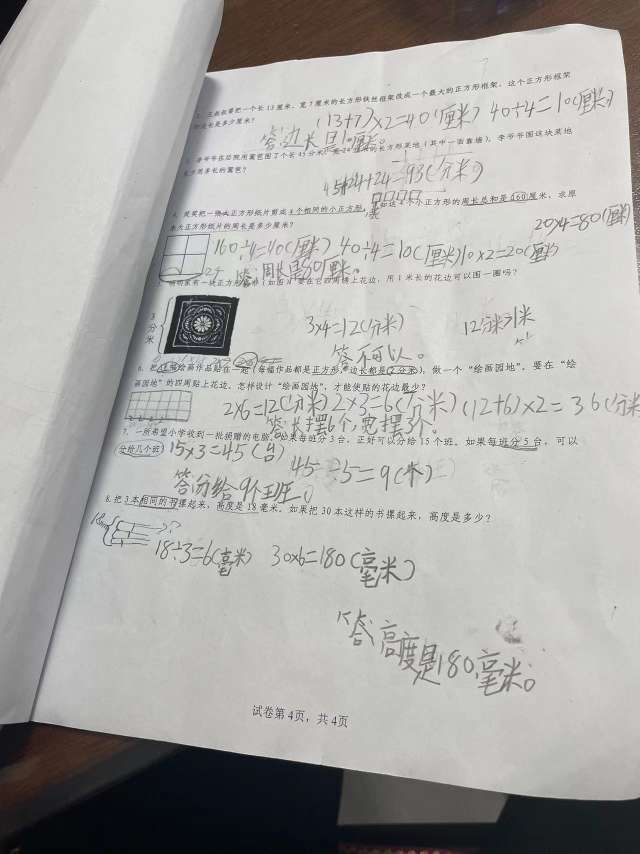 把一个长13厘米、宽7厘米的长方形铁丝框架改成一个最大的正方形框架,这个正方形框架
边长是多少厘米?
(13+7)×2=40(厘米) 40÷4=10(厘米)
答边长是10厘米。
李爷爷在后院用篱笆围了个长45分米、宽24分米的长方形菜地(其中一面靠墙),李爷爷围这块菜地
多长的篱笆?
45+24+24=93(分米)
把一张大正方形纸片剪成4个相同的小正方形,
小正方形的周长总和是160厘米,求原
来大正方形纸片的周长是多少厘米?
20×4=80(厘米)
160÷4=40(厘米) 40÷4=10(厘米) 10×2=20(厘米)
答:周长是80厘米。
家有一块正方形
(如图)要在它四周绣上花边,用1米长的花边可以围一圈吗?
3分米
3×4=12(分米)
12分米>1米
答不可以。
6.把
绘画作品贴在一起(每幅作品都是正方形,边长都是2分米),做一个“绘画园地”,要在“绘
画园地”的四周贴上花边,怎样设计“绘画园地”,才能使贴的花边最少?
2×6=12(分米) 2×3=6(分米) (12+6)×2=36(分米
答:长摆6个,宽摆3个。
7.一所希望小学收到一批捐赠的电脑,如果每班分3台,正好可以分给15个班,如果每班分5台,可以
分给几个班?
15×3=45(台)
45÷5=9(个)
答:分给9个班。
8.把3本相同的书摞起来,高度是18毫米,如果把30本这样的书摞起来,高度是多少?
18÷3=6(毫米) 30×6=180(毫米)
答高度是180毫米。
试卷第4页,共4页